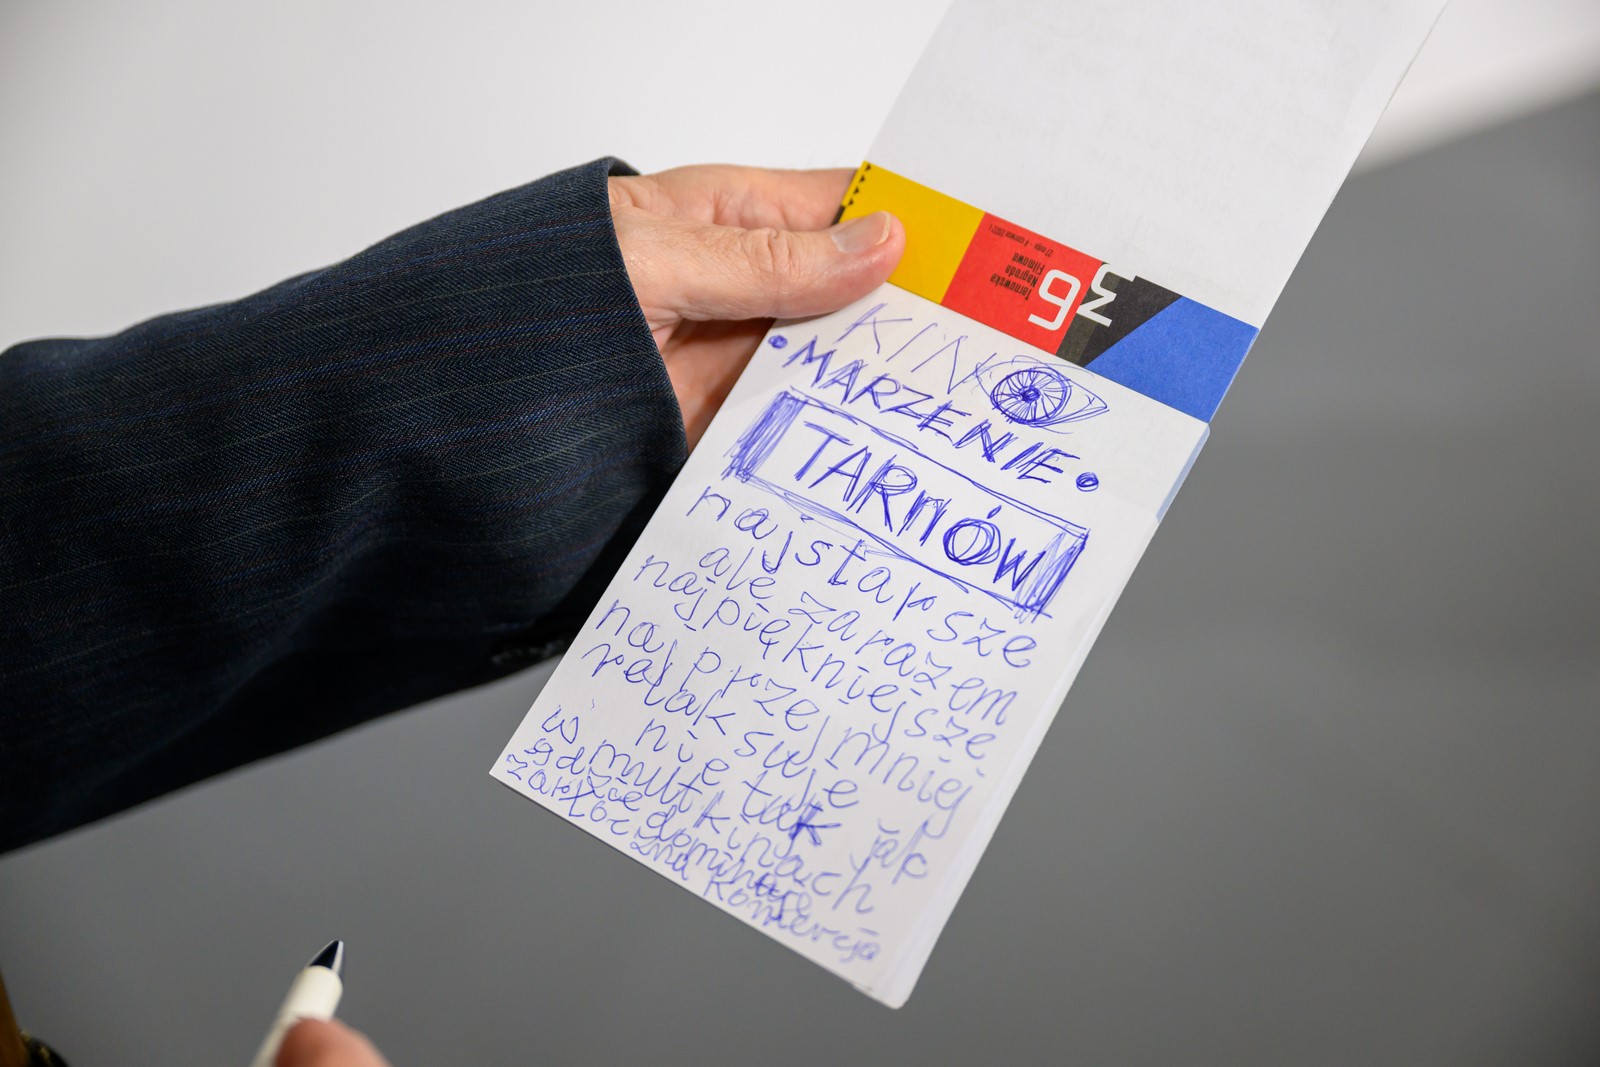 36
Tarnowska
Nagroda
Filmowa
27 maja - 4 czerwca 2022 r.
KINO
• MARZENIE •
TARNÓW
najstarsze
ale zarazem
najpiękniejsze
najprzejmniej
relaksuje
nie tak jak
w multkinach
gdzie dominuje
żarłoczna Komercja